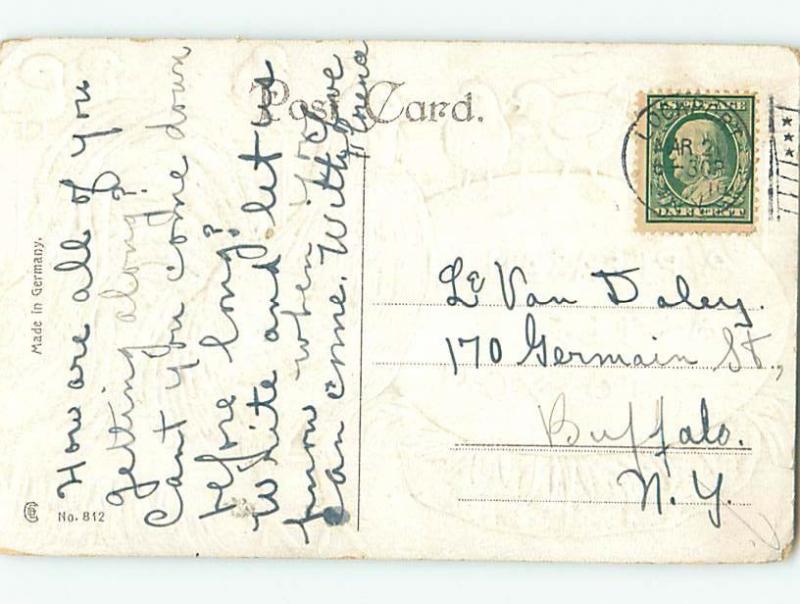 Post Card.
How are all of you
getting along?
Cant you come down
before long?
Write and let me
know when you
can come. With love
Made in Germany.
No. 812
U.S. POSTAGE
ONE CENT
Le Van Daley.
170 Germain St.,
Buffalo.
N.Y.